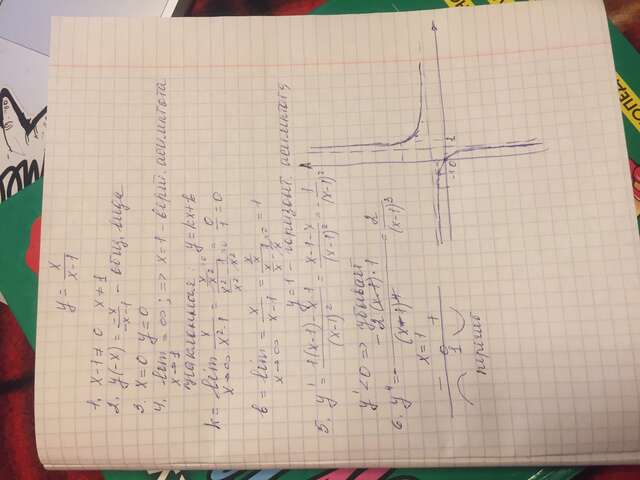 y = x/(x-1)
1. x-1≠0 x≠1
2. y(-x) = -x/(-x-1) - общ. вида
3. x=0 y=0
4. lim x→1 = ∞; => x=1 - верт. асимптота
наклонная: y=kx+b
k = lim x→∞ x/(x²-1) = (x/x²)/(x²/x² - 1/x²) = 0/1 = 0
b = lim x→∞ = x/(x-1) = (x/x)/(x/x - 1/x) = 1
y=1 - горизонт. асимптота
5. y' = (1(x-1)-x·1)/(x-1)² = (x-1-x)/(x-1)² = -1/(x-1)²
y'<0 => убывает
6. y" = - (-2(x-1)·1)/(x-1)⁴ = 2/(x-1)³
x=1
- 0 +
1
перегиб
-1 0 1
ОПЕД